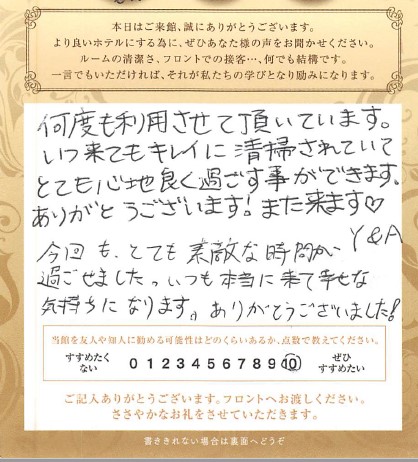 本日はご来館、誠にありがとうございます。
より良いホテルにする為に、ぜひあなた様の声をお聞かせください。
ルームの清潔さ、フロントでの接客…、何でも結構です。
一言でもいただければ、それが私たちの学びとなり励みになります。
何度も利用させて頂いています。
いつ来てもキレイに清掃されていて
とても心地良く過ごす事ができます。
ありがとうございます!また来ます♡
Y&A
今回も、とても素敵な時間が
過ごせました。いつも本当に来て幸せな
気持ちになります。ありがとうございました!
当館を友人や知人に勧める可能性はどのくらいあるか、点数で教えてください。
すすめたくない 0 1 2 3 4 5 6 7 8 9 10 ぜひすすめたい
ご記入ありがとうございます。フロントへお渡しください。
ささやかなお礼をさせていただきます。
書ききれない場合は裏面へどうぞ